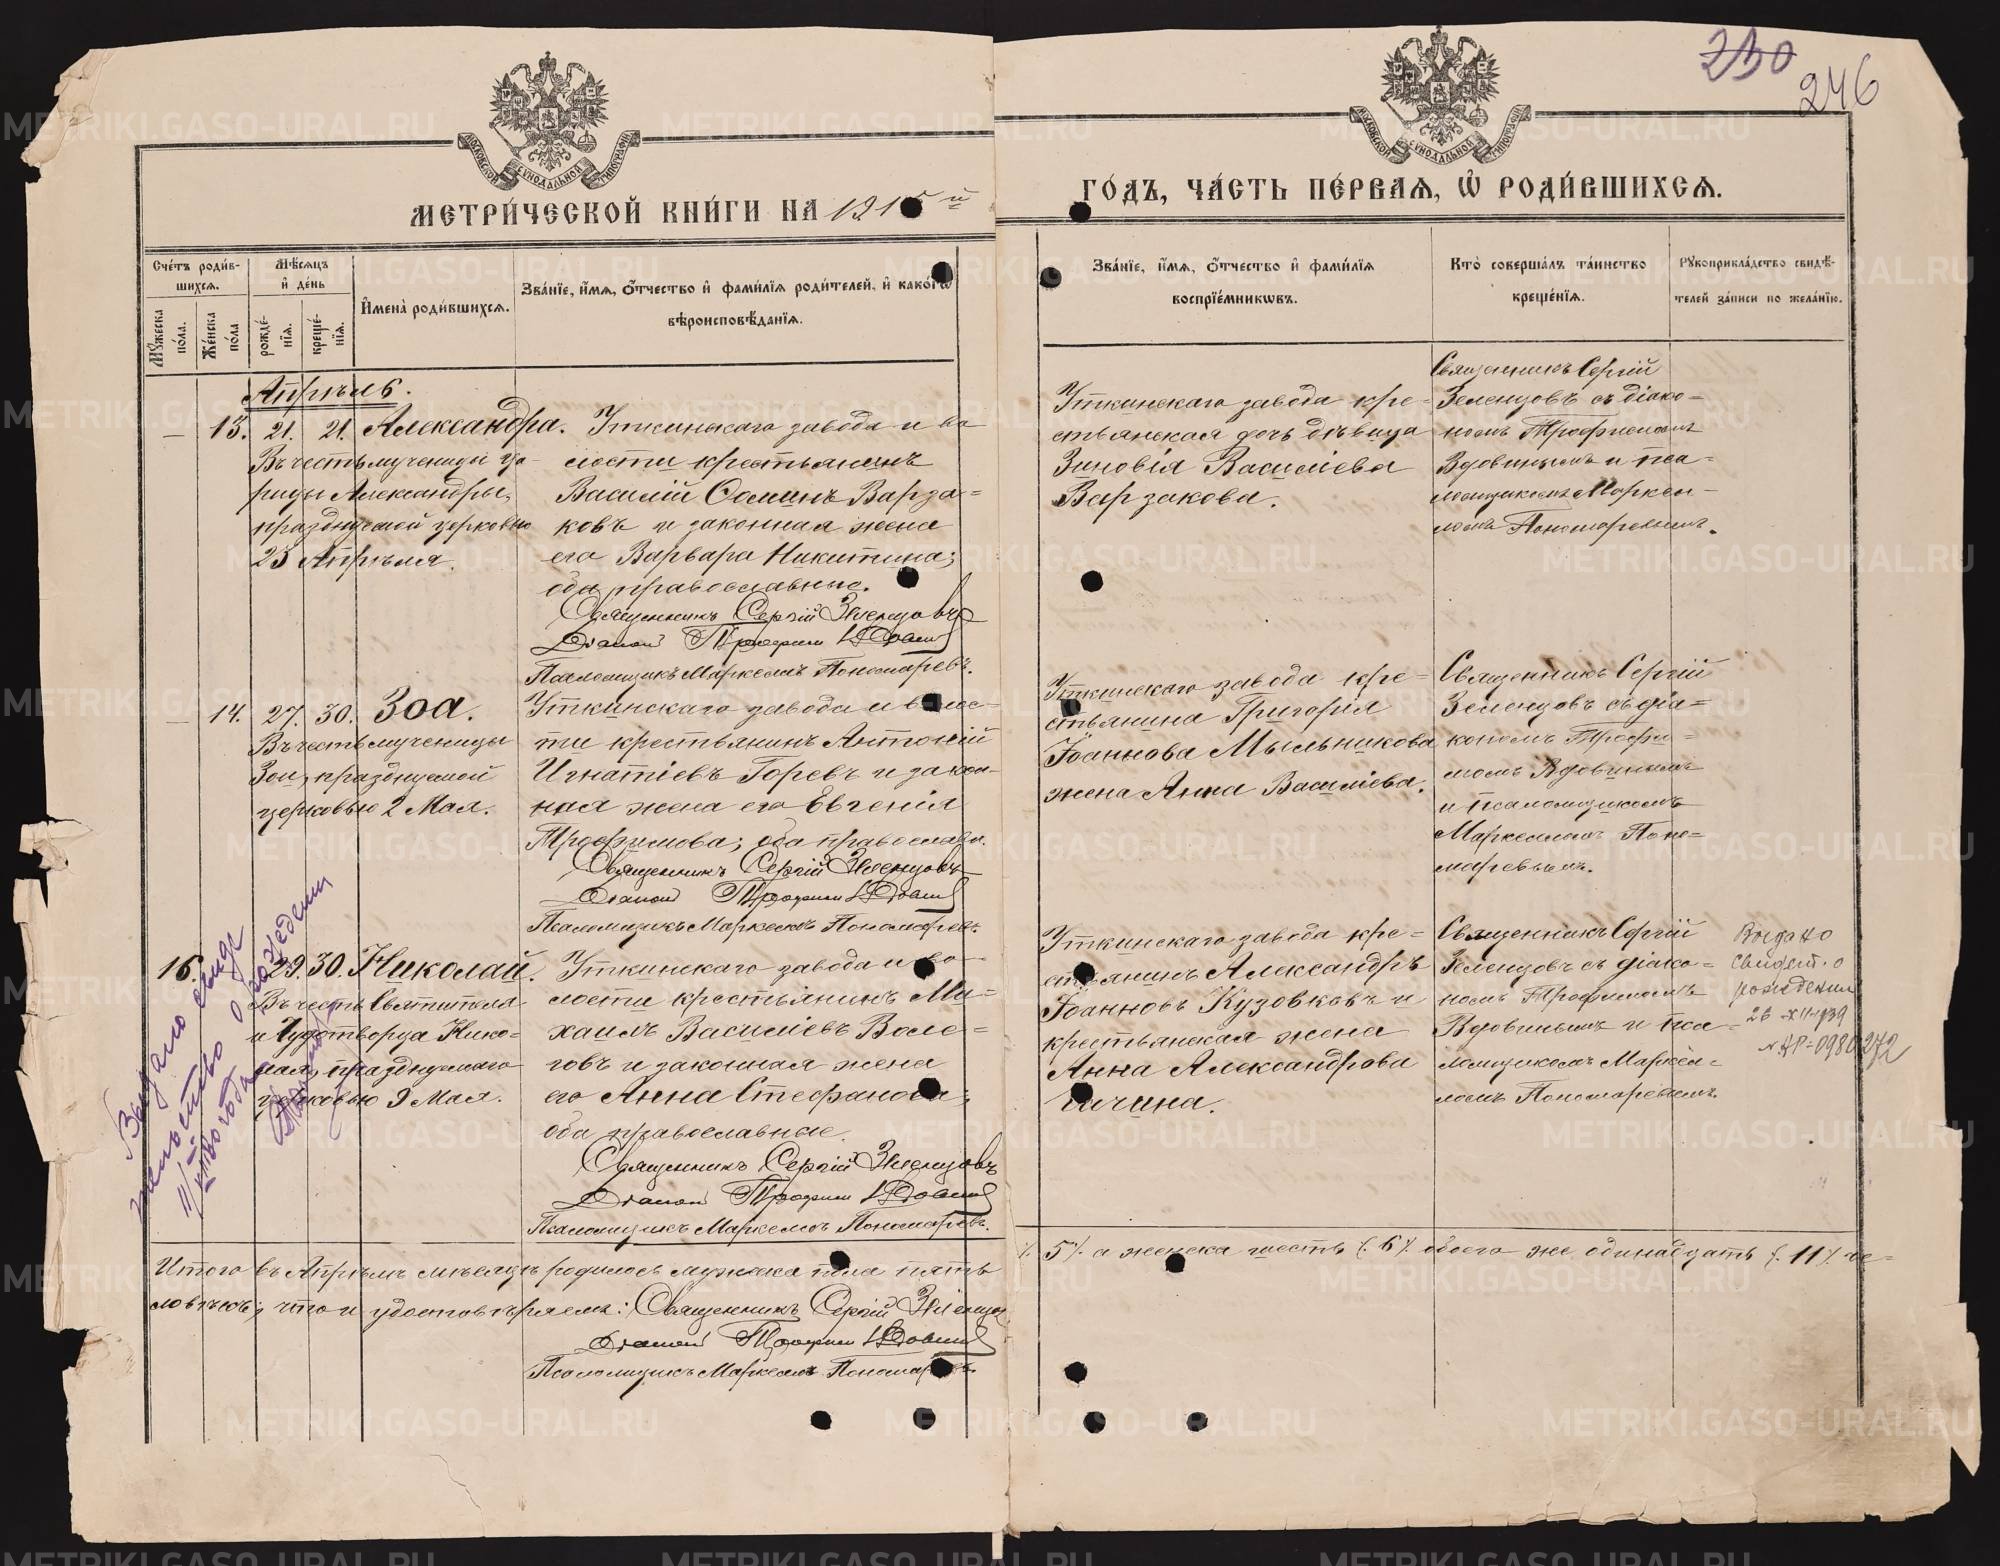 730
246
МОСКОВСКОЙ СѴНОДАЛЬНОЙ ТИПОГРАФІИ
МОСКОВСКОЙ СѴНОДАЛЬНОЙ ТИПОГРАФІИ
МЕТРИ́ЧЕСКОЙ КНИ́ГИ НА 1915й
ГО́ДЪ, ЧА́СТЬ ПЕ́РВАѦ, Ѡ҆ РОДИ́ВШИХСѦ.
Сче́тъ роди́в-
шихсѧ.
Мѣ́сѧцъ
и҆ де́нь
Мꙋ́жеска
по́ла.
Же́нска
по́ла
рожде́-
нїѧ.
креще́-
нїѧ.
И҆мена̀ роди́вшихсѧ.
Зва́нїе, и҆́мѧ, ѻ҆́тчество и҆ фами́лїѧ роди́телей, и҆ како́гѡ
вѣроисповѣ́данїѧ.
Зва́нїе, и҆́мѧ, ѻ҆́тчество и҆ фами́лїѧ
воспрїе́мникѡвъ.
Кто̀ соверша́лъ та́инство
креще́нїѧ.
Рꙋкоприкла́дство свидѣ́-
телей за́писи по жела́нїю.
Апрѣль.
— 13. 21. 21. Александра.
Въ честь мученицы ца-
рицы Александры,
празднуемой церковью
23 Апрѣля.
Уткинскаго завода и во
лости крестьянинъ
Василій Ѳоминъ Варза-
ковъ и законная жена
его Варвара Никитина;
оба православные.
Священникъ Сергій Зеленцовъ
Діаконъ Трофимъ Вдовинъ
Псаломщикъ Маркеллъ Пономаревъ.
Уткинскаго завода кре-
стьянская дочь дѣвица
Зиновія Василіева
Варзакова.
Священникъ Сергій
Зеленцовъ съ діако-
номъ Трофимомъ
Вдовинымъ и пса-
ломщикомъ Маркел-
ломъ Пономаревымъ.
— 14. 27. 30. Зоа.
Въ честь мученицы
Зои, празднуемой
церковью 2 Мая.
Уткинскаго завода и волос-
ти крестьянинъ Антоній
Игнатіевъ Горевъ и закон-
ная жена его Евгенія
Трофимова; оба православн.
Священникъ Сергій Зеленцовъ
Діаконъ Трофимъ Вдовинъ
Псаломщикъ Маркеллъ Пономаревъ.
Уткинскаго завода кре-
стьянина Григорія
Іоаннова Мыльникова
жена Анна Василіева.
Священникъ Сергій
Зеленцовъ съ діа-
кономъ Трофи-
момъ Вдовинымъ
и псаломщикомъ
Маркелломъ Поно-
маревымъ.
16. 29. 30. Николай.
Въ честь Святителя
и Чудотворца Нико-
лая, празднуемаго
церковью 9 Мая.
Уткинскаго завода и во-
лости крестьянинъ Ми-
хаилъ Василіевъ Воле-
говъ и законная жена
его Анна Стефанова;
оба православные.
Священникъ Сергій Зеленцовъ
Діаконъ Трофимъ Вдовинъ
Псаломщикъ Маркеллъ Пономаревъ.
Уткинскаго завода кре-
стьянинъ Александръ
Іоанновъ Кузовковъ и
крестьянская жена
Анна Александрова
Священникъ Сергій
Зеленцовъ съ діако-
номъ Трофимомъ
Вдовинымъ и пса-
ломщикомъ Маркел-
ломъ Пономаревымъ.
Выдано
свидет. о
рождении
26-XII-1939
Выдано свиде
тельство о рождении
Итого въ Апрѣлѣ мѣсяцѣ родилось мужска пола пять
/. 5 ./. а женска шесть /. 6 ./. обоего же одинадцать /. 11 ./. че-
ловѣкъ; что и удостовѣряемъ: Священникъ Сергій Зеленцов
Діаконъ Трофимъ Вдовинъ
Псаломщикъ Маркеллъ Пономаревъ.
METRIKI.GASO-URAL.RU